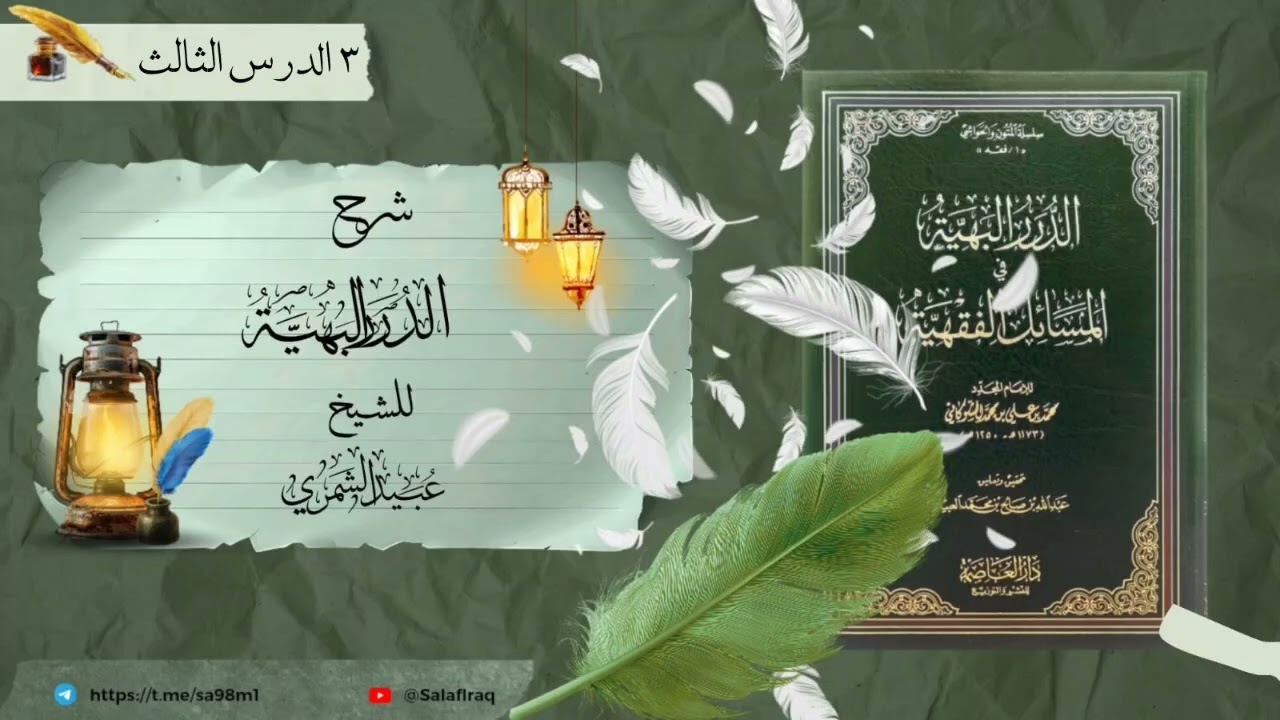 ٣ الدرس الثالث
شرح
الدُّرَرُ البَهِيَّةُ
للشيخ
عُبيد الشمري
سلسلة المتون والحواشي
«١/ فقه»
الدُّرَرُ البَهِيَّةُ
في
المَسَائِلِ الفِقْهِيَّةِ
للإمام المجدد
محمد بن علي بن محمد الشوكاني
(١١٧٣هـ - ١٢٥٠هـ)
تحقيق وتعليق
عبد الله بن صالح بن محمد
دَارُ العَاصِمَة
للنشر والتوزيع
https://t.me/sa98m1
@SalafIraq